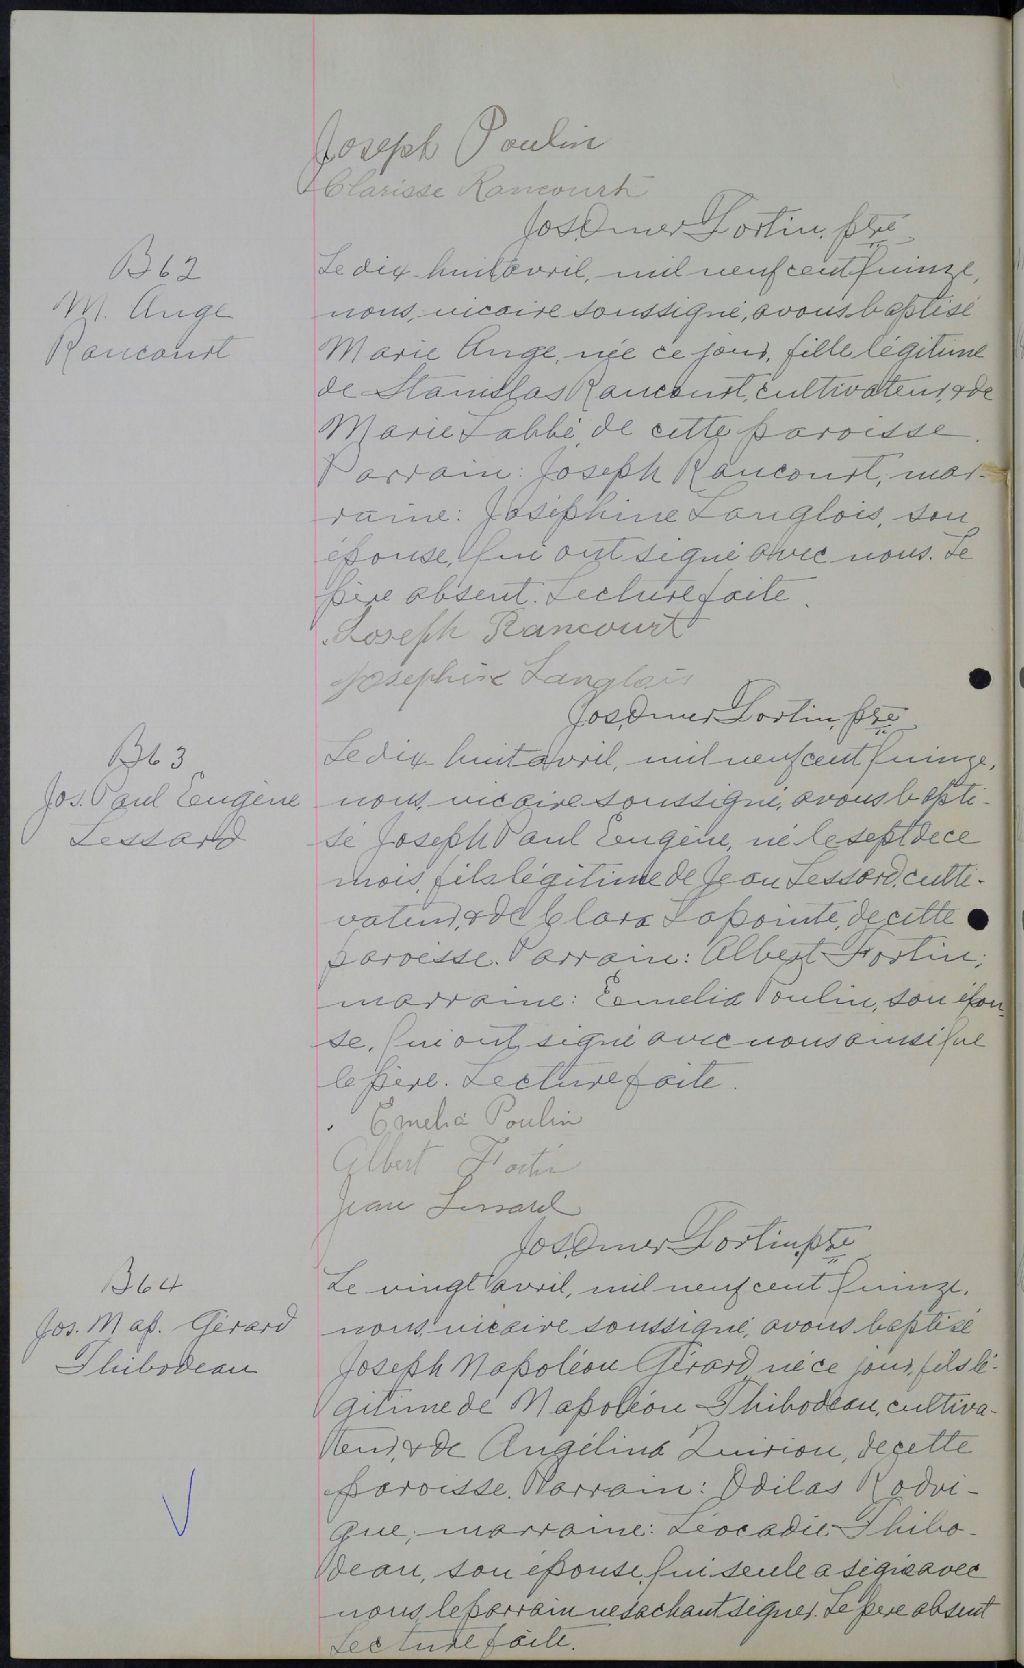 Joseph Poulin
Clarisse Rancourt
Jos. Omer Fortin, ptre
B62
M. Ange
Rancourt
Le dix-huit avril, mil neuf cent quinze,
nous, vicaire soussigné, avons baptisé
Marie Ange, née ce jour, fille légitime
de Stanislas Rancourt, cultivateur, & de
Marie Labbé, de cette paroisse.
Parrain: Joseph Rancourt, mar-
raine: Joséphine Langlois, son
épouse, qui ont signé avec nous. Le
père absent. Lecture faite.
Joseph Rancourt
Josephine Langlois
Jos. Omer Fortin, ptre
B63
Jos. Paul Eugène
Lessard
Le dix-huit avril, mil neuf cent quinze,
nous, vicaire soussigné, avons bapti-
sé Joseph Paul Eugène, né le sept de ce
mois, fils légitime de Jean Lessard, culti-
vateur, & de Clara Lapointe, de cette
paroisse. Parrain: Albert Fortin;
marraine: Emelia Poulin, son épou-
se, qui ont signé avec nous ainsi que
le père. Lecture faite.
Emelia Poulin
Albert Fortin
Jean Lessard
Jos. Omer Fortin, ptre
B64
Jos. Nap. Gérard
Thibodeau
Le vingt avril, mil neuf cent quinze,
nous, vicaire soussigné, avons baptisé
Joseph Napoléon Gérard, né ce jour, fils lé-
gitime de Napoléon Thibodeau, cultiva-
teur, & de Angélina Quirion, de cette
paroisse. Parrain: Odilas Rodri-
gue; marraine: Léocadie Thibo-
deau, son épouse, qui seule a signé avec
nous, le parrain ne sachant signer. Le père absent
Lecture faite.